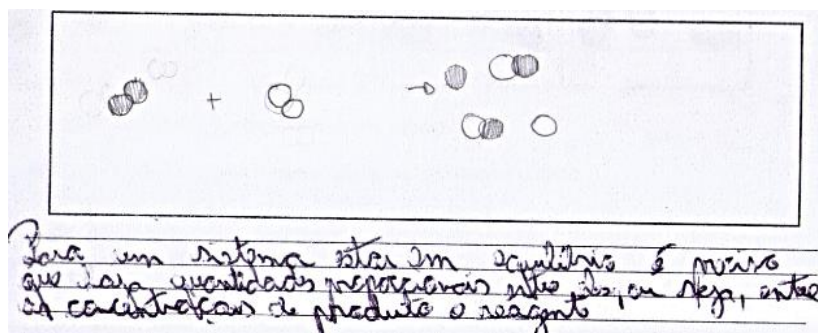 + →
Para um sistema estar em equilíbrio é preciso
que haja quantidades proporcionais entre eles, ou seja, entre
as concentrações de produto e reagente